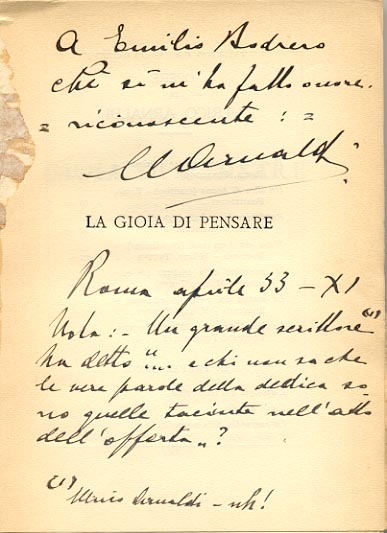 A Emilio Bodrero
che sì m'ha fatto onore.
= riconoscente : =
UArnaldi
LA GIOIA DI PENSARE
Roma aprile 33 - XI
Nota :- Un grande scrittore (1)
ha detto "... e chi non sa che
le vere parole della dedica so-
no quelle taciute nell'atto
dell'offerta„?
(1) Ulrico Arnaldi - uh!